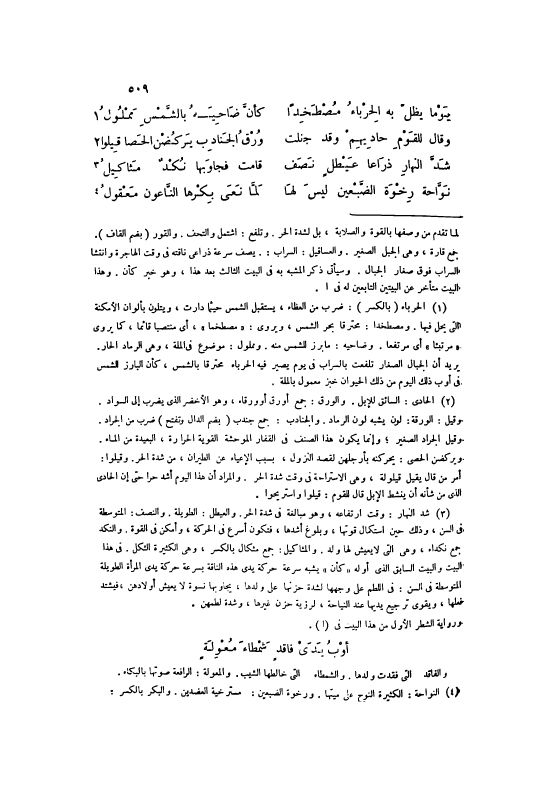 ٥٠٩
يَوْما يظلّ به الحِرْباءُ مُصْطَخِداً كأنَّ ضَاحِيَهُ بالشَّمْسِ مَمْلُولُ١
وقال للقَوْمِ حاديهِمْ وقد جعلت وُرْقُ الجَنادِبِ يَركُضْنَ الحَصا قيلوا٢
شَدَّ النهارِ ذراعا عَيْطَلٍ نَصَفٍ قامت فجاوبها نُكْدٌ مَثاكِيلُ٣
نَوَّاحة رِخْوَة الضَّبْعين ليسَ لهَا لمَّا نَعَى بِكْرها النَّاعون مَعْقولُ٤
لما تقدم من وصفها بالقوة والصلابة ، بل لشدة الحر . وتلفع : اشتمل والتحف . والقور ( بضم القاف ).
جمع قارة ، وهى الجبل الصغير . والعساقيل : السراب : . يصف سرعة ذراعى ناقته فى وقت الهاجرة وانتشا
السراب فوق صغار الجبال . وسيأتى ذكر المشبه به فى البيت الثالث بعد هذا ، وهو خبر كأن . وهذا
البيت متأخر عن البيتين التابعين له فى ا .
(١) الحرباء ( بالكسر ) : ضرب من العظاء ، يستقبل الشمس حيثما دارت ، ويتلون بألوان الأمكنة
التى يحل فيها . ومصطخدا : محترقا بحر الشمس ، ويروى : « مصطخما » ، أى منتصبا قائما ، كما يروى
« مرتبئا » أى مرتفعا . وضاحيه : مابرز للشمس منه . ومملول : موضوع فى الملة ، وهى الرماد الحار.
يريد أن الجبال الصغار تلفعت بالسراب فى يوم يصير فيه الحرباء محترقا بالشمس ، كأن البارز للشمس
فى أوب ذلك اليوم من ذلك الحيوان خبز معمول بالملة .
(٢) الحادى : السائق للإبل . والورق : جمع أورق أوورقاء ، وهو الأخضر الذى يضرب إلى السواد .
وقيل : الورقة : لون يشبه لون الرماد . والجنادب : جمع جندب ( بضم الدال وتفتح ) ضرب من الجراد.
وقيل الجراد الصغير ؛ وإنما يكون هذا الصنف فى القفار الموحشة القوية الحرارة ، البعيدة من الماء .
ويركضن الحصى : يحركنه بأرجلهن لقصد النزول ، بسبب الإعياء عن الطيران ، من شدة الحر . وقيلوا :
أمر من قال يقيل قيلولة ، وهى الاستراحة فى وقت شدة الحر . والمراد أن هذا اليوم أشد حرا حتى إن الحادى
الذى من شأنه أن ينشط الإبل قال للقوم : قيلوا واستريحوا .
(٣) شد النهار : وقت ارتفاعه ، وهو مبالغة فى شدة الحر . والعيطل : الطويلة . والنصف : المتوسطة
فى السن ، وذلك حين استكمال قوتها ، وبلوغ أشدها ، فتكون أسرع فى الحركة ، وأمكن فى القوة . والنكد
جمع نكداء ، وهى التى لايعيش لها ولد . والمثاكيل : جمع مثكال بالكسر ، وهى الكثيرة الثكل . فى هذا
البيت والبيت السابق الذى أوله « كأن » يشبه سرعة حركة يدى هذه الناقة بسرعة حركة يدى المرأة الطويلة
المتوسطة فى السن : فى اللطم على وجهها لشدة حزنها على ولدها ، يجاوبها نسوة لا يعيش أولادهن ، فيشتد
فعلها ، ويقوى ترجيع يديها عند النياحة ، لرؤية حزن غيرها ، وشدة لطمهن .
ورواية الشطر الأول من هذا البيت فى ( ا ) .
أوْبُ يَدَىْ فاقدٍ شَمْطاءَ مُعْوِلَةٍ
والفاقد التى فقدت ولدها . والشمطاء التى خالطها الشيب . والمعولة : الرافعة صوتها بالبكاء .
(٤) النواحة : الكثيرة النوح على ميتها . ورخوة الضبعين : مسترخية العضدين . والبكر بالكسر :